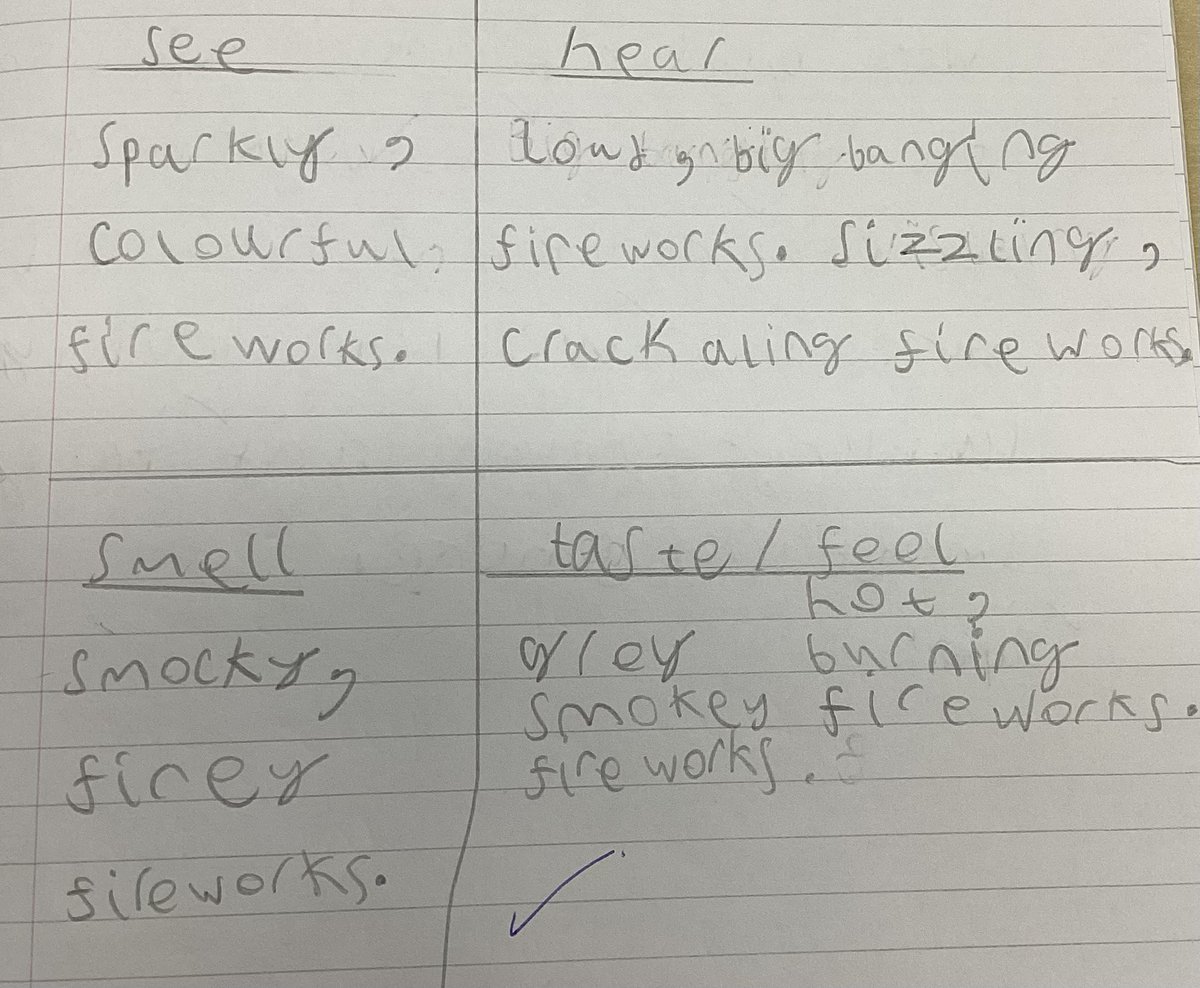 see
sparkly,
colourful
fireworks.
hear
loud, big banging
fireworks. sizzling,
crackaling fireworks.
smell
smocky,
firey
fireworks.
taste/feel
grey
smokey
fireworks.
hot,
burning
fireworks.